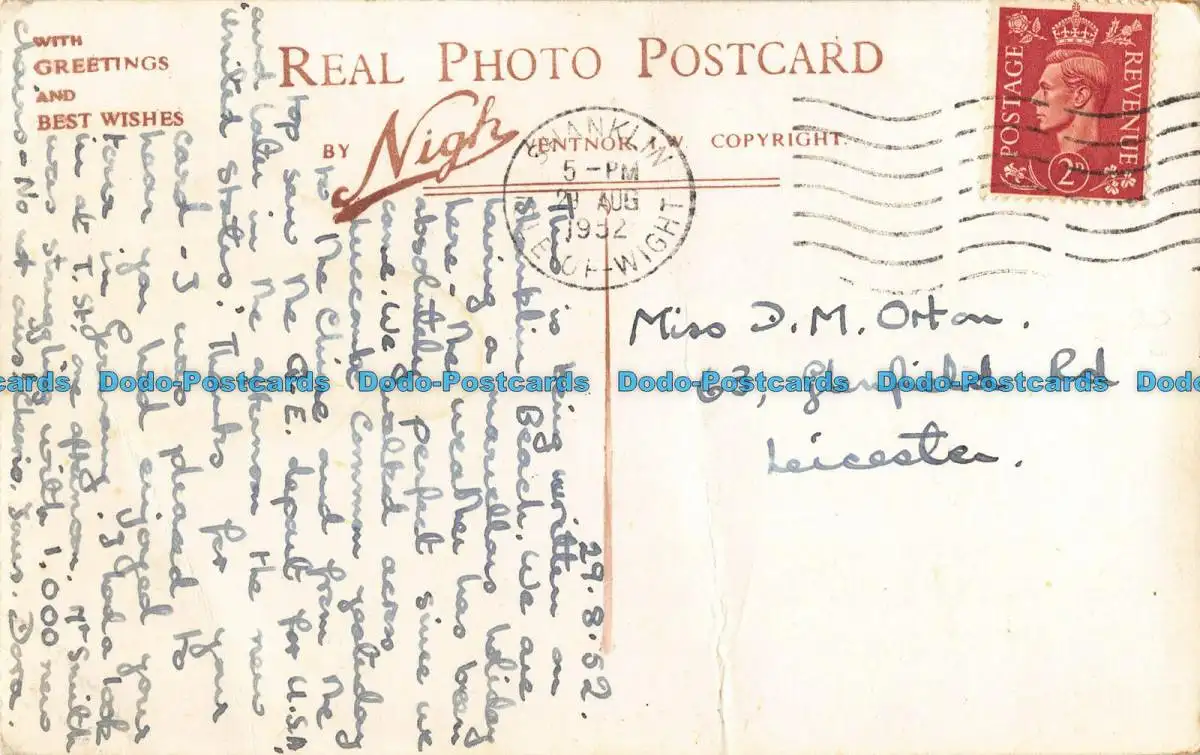 WITH
GREETINGS
AND
BEST WISHES
REAL PHOTO POSTCARD
BY Nigh VENTNOR, I.W. COPYRIGHT.
SHANKLIN
5 - PM
29 AUG
1952
ISLE OF WIGHT
POSTAGE REVENUE
2D
Miss D. M. Orton.
63, Glenfield Rd
Leicester.
29.8.52.
This is being written on
Shanklin Beach. We are
having a marvellous holiday
here - the weather has been
absolutely perfect since we
came. We walked across
Luccombe Common yesterday
to the Chine and from the
top saw the Q.E. depart for U.S.A.
and later in the afternoon the new
'United States'. Thanks for your
card - I was pleased to
hear you had enjoyed your
tour in Germany. I had a look
in at T. St. one afternoon. Mr Smith
was struggling with 1,000 new
chairs - No at
Yours. Dora.
Dodo-Postcards Dodo-Postcards Dodo-Postcards Dodo-Postcards Dodo-Postcards